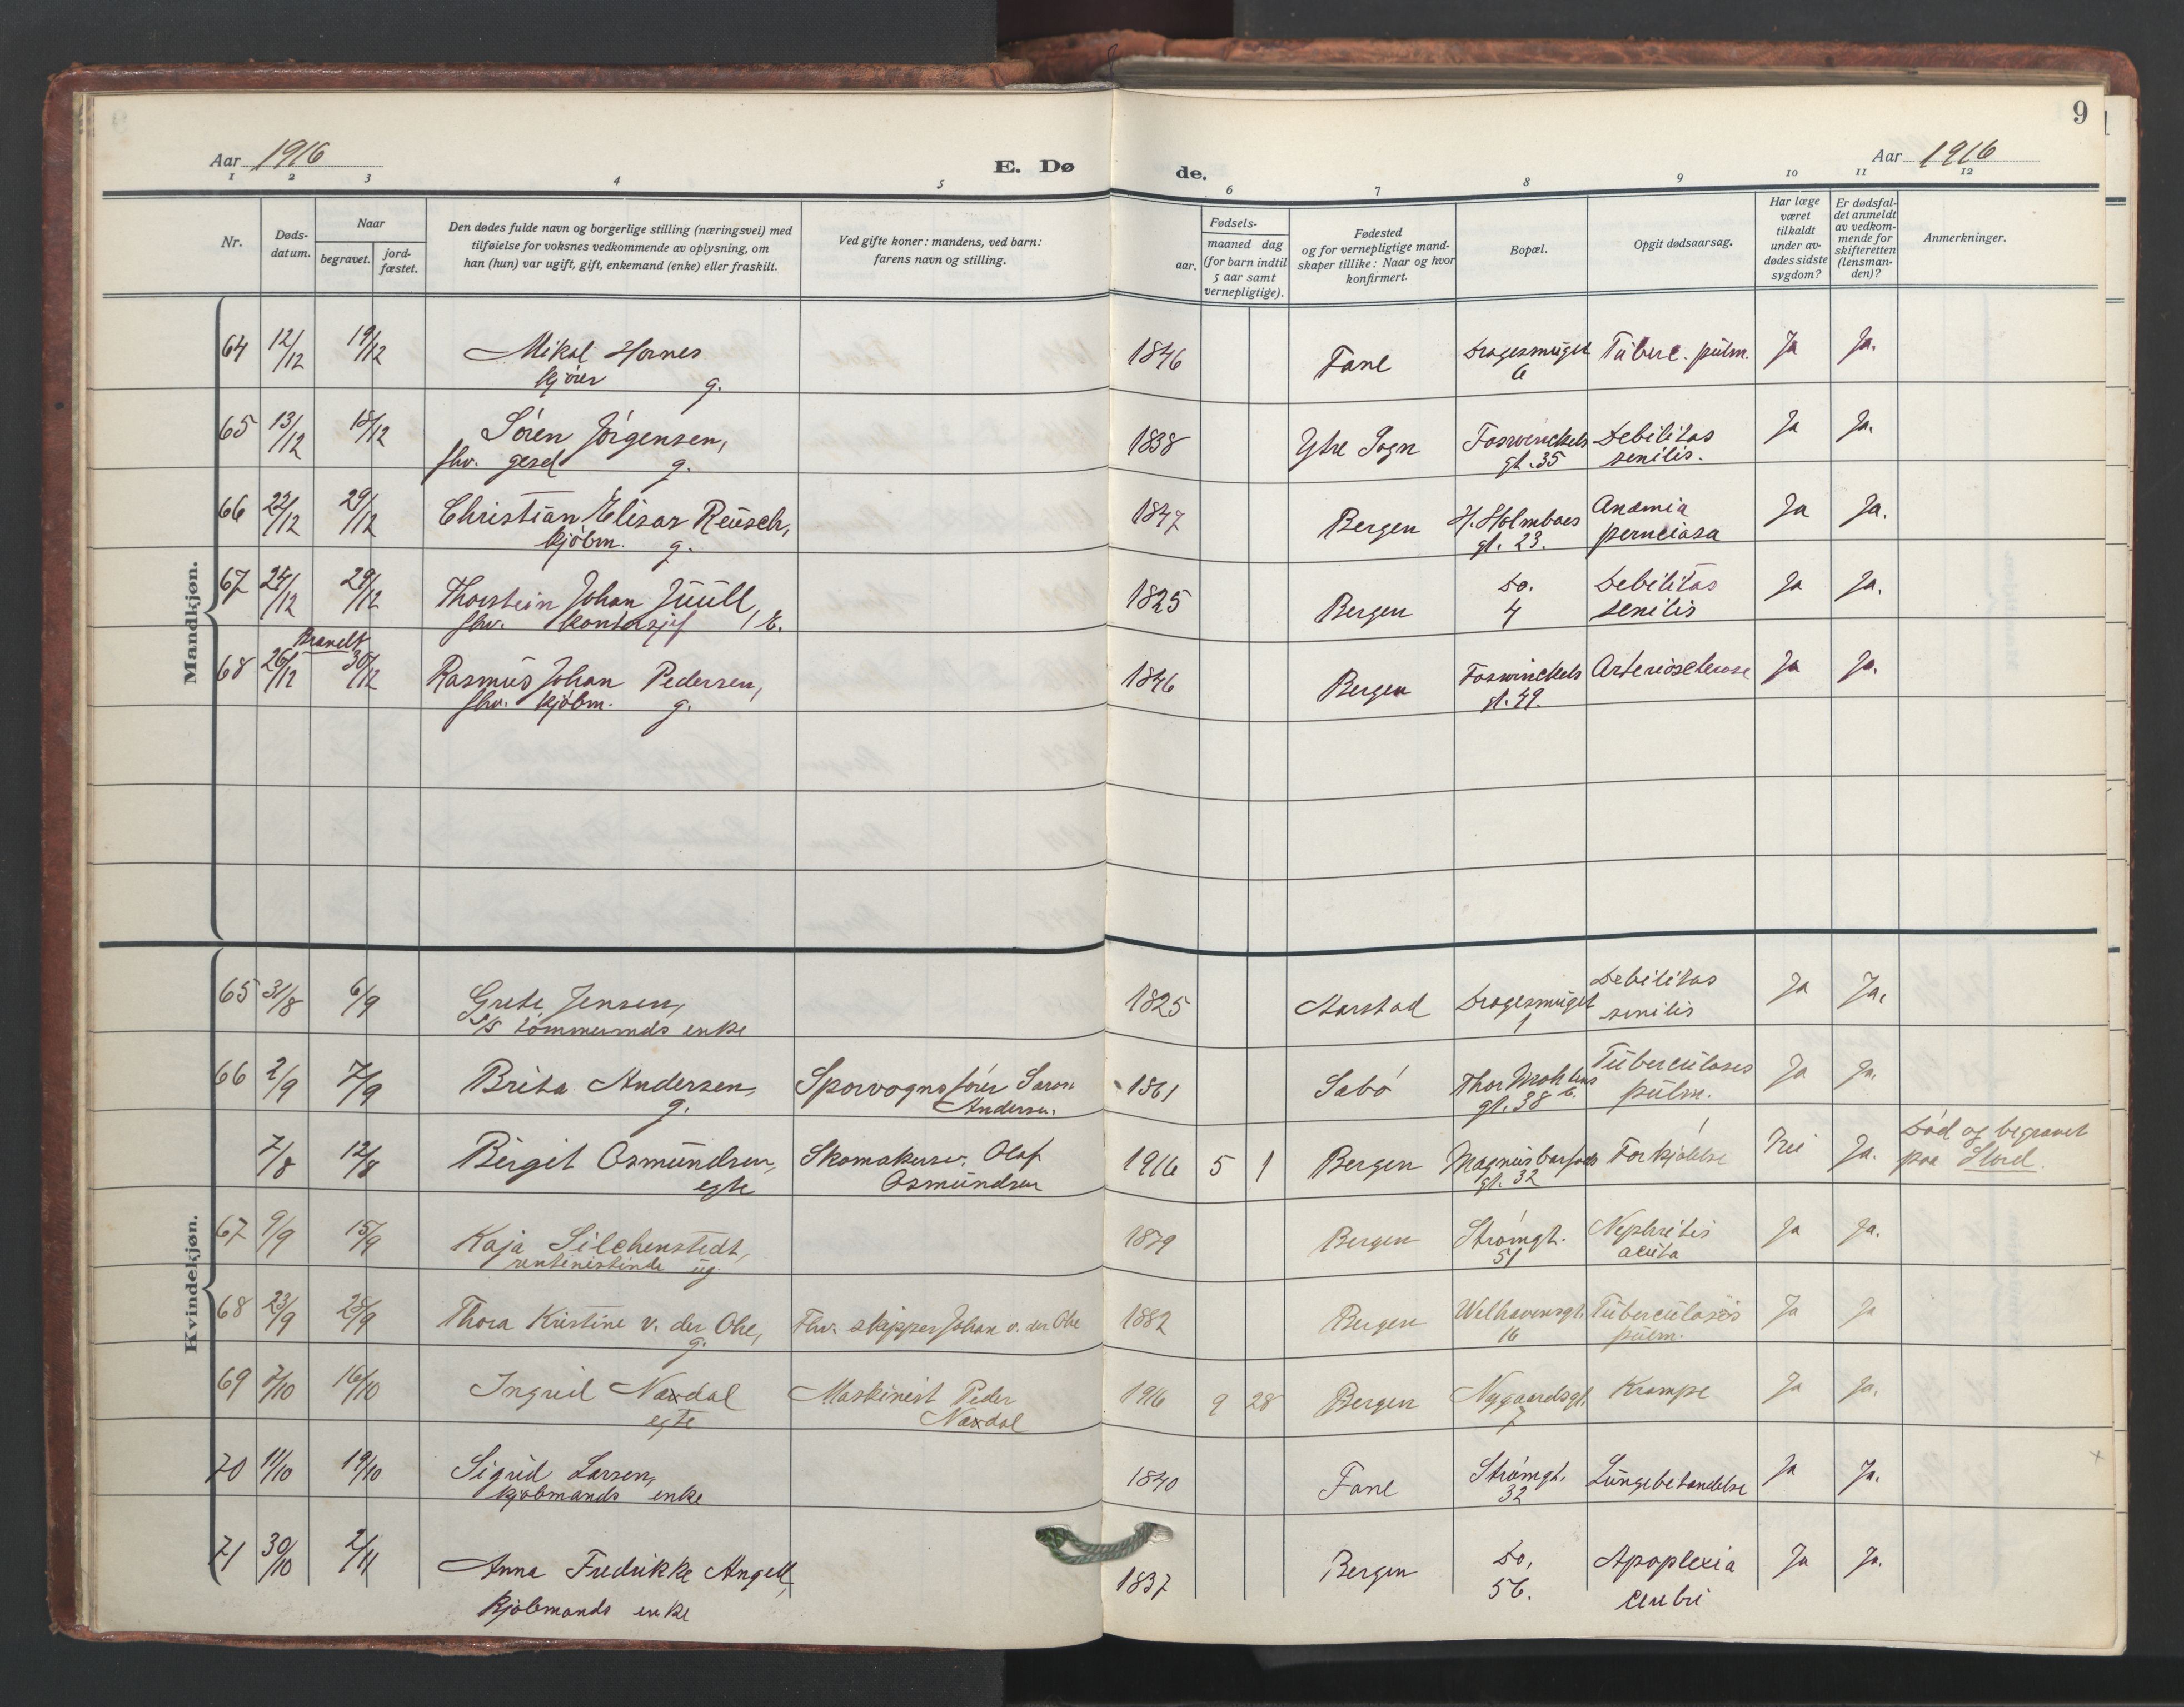 9
Aar 1916
E. Dø
de.
Aar 1916
1 2 3 4 5 6 7 8 9 10 11 12
Nr.
Døds-
datum.
Naar
begravet.
jord-
fæstet.
Den dødes fulde navn og borgerlige stilling (næringsvei) med
tilføielse for voksnes vedkommende av oplysning, om
han (hun) var ugift, gift, enkemand (enke) eller fraskilt.
Ved gifte koner: mandens, ved barn:
farens navn og stilling.
Fødsels-
aar.
maaned dag
(for barn indtil
5 aar samt
vernepligtige).
Fødested
og for vernepligtige mand-
skaper tillike: Naar og hvor
konfirmert.
Bopæl.
Opgit dødsaarsag.
Har læge
været
tilkaldt
under av-
dødes sidste
sygdom?
Er dødsfal-
det anmeldt
av vedkom-
mende for
skifteretten
(lensman-
den)?
Anmerkninger.
Mandkjøn.
64 12/12 19/12 Mikal Hornes 1846 Fane Dragesmuget Tuberc. pulm. Ja Ja.
kjører g. 6
65 13/12 18/12 Sören Jörgensen, 1838 Ytre Sogn Foswinckels Debilitas Ja Ja.
fhv. gesel g. gt. 35 senilis.
66 22/12 29/12 Christian Elisar Reusch, 1847 Bergen H. Holmboes Anæmia Ja Ja.
kjöbm. g. gt. 23. perniciosa
67 24/12 29/12 Thorstein Johan Juull, 1825 Bergen Do. Debilitas Ja Ja.
fhv. kontorsjef E. 4 senilis
Brandt
68 26/12 30/12 Rasmus Johan Pedersen, 1846 Bergen Foswinckels Arteriosclerose Ja Ja.
fhv. kjöbm. g. gt. 49.
Kvindekjøn.
65 31/8 6/9 Grete Jensen, 1825 Aarstad Dragesmuget Debilitas Ja Ja.
tömmermds enke 1 senilis
66 2/9 7/9 Brita Andersen, Sporvognsförer 1861 Sabö Thor Mohlens Tuberculoses Ja Ja.
g. Andersen. gt. 38 b. pulm.
7/8 12/8 Birgit Osmundsen, Skomakersv. Olaf 1916 5 1 Bergen Magnus Barfods Forkjölelse Nei Ja. Död og begravet
egte Osmundsen gt. 32 paa Stord.
67 9/9 15/9 Kaja Silchenstedt, 1879 Bergen Strömgt. Nephritis Ja Ja.
rentenistinde ug. 51 acuta
68 23/9 28/9 Thora Kristine v. der Ohe, Fhv. skipper Johan v. der Ohe 1882 Bergen Welhavensgt. Tuberculoses Ja Ja
g. 16 pulm.
69 7/10 16/10 Ingrid Naxdal Maskinist Peder 1916 9 28 Bergen Nygaardsgt. Krampe Ja Ja.
egte Naxdal 7
70 11/10 19/10 Sigrid Larsen, 1840 Fane Strömgt. Lungebetændelse Ja Ja.
kjöbmands enke 32
71 30/10 2/11 Anna Fredrikke Angell, 1837 Bergen Do. Apoplexia Ja Ja.
kjöbmands enke 56. cerebri